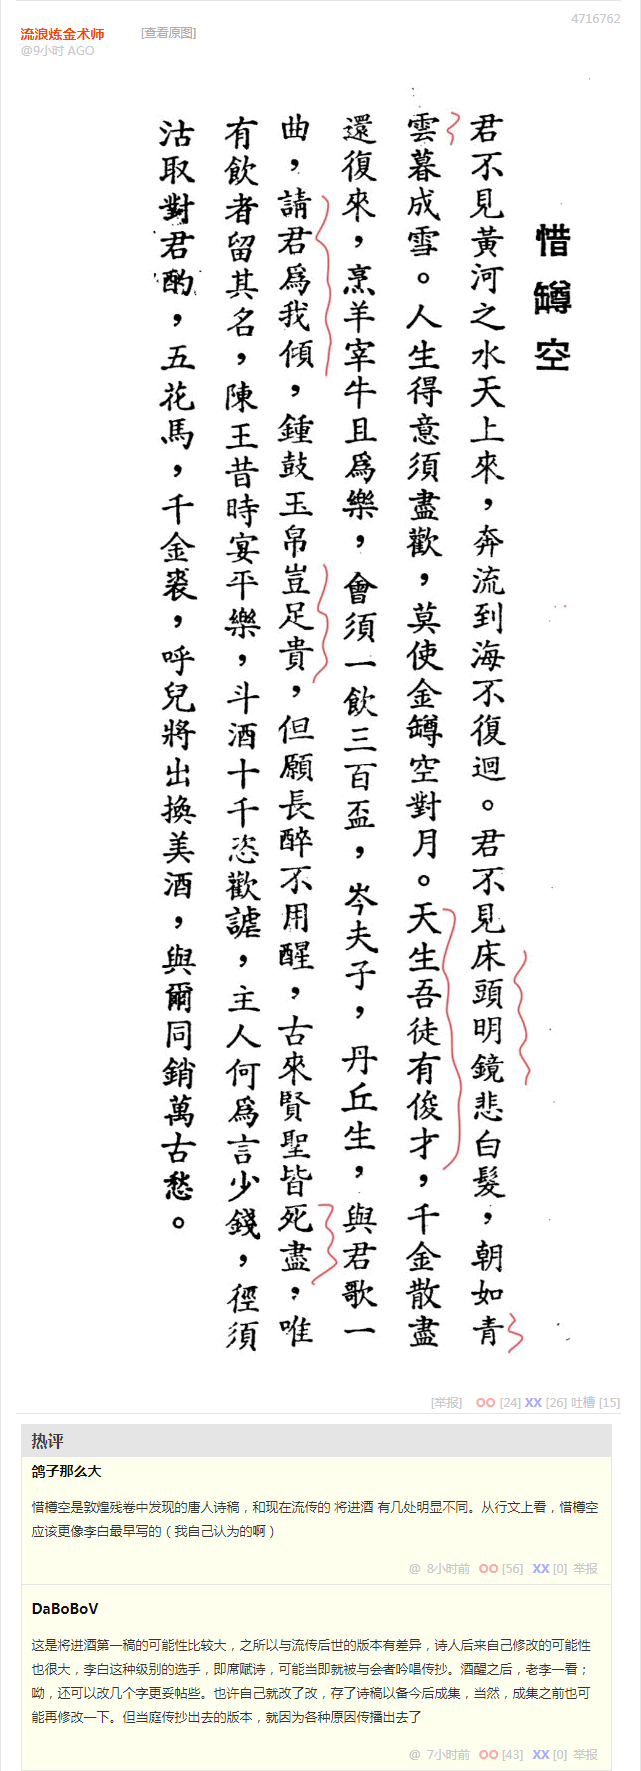 4716762
流浪炼金术师 [查看原图]
@9小时 AGO
惜罇空
君不見黃河之水天上來，奔流到海不復迴。君不見床頭明鏡悲白髮，朝如青
雲暮成雪。人生得意須盡歡，莫使金罇空對月。天生吾徒有俊才，千金散盡
還復來，烹羊宰牛且爲樂，會須一飲三百盃，岑夫子，丹丘生，與君歌一
曲，請君爲我傾，鍾鼓玉帛豈足貴，但願長醉不用醒，古來賢聖皆死盡，唯
有飲者留其名，陳王昔時宴平樂，斗酒十千恣歡謔，主人何爲言少錢，徑須
沽取對君酌，五花馬，千金裘，呼兒將出換美酒，與爾同銷萬古愁。
[举报] OO [24] XX [26] 吐槽 [15]
热评
鸽子那么大
惜樽空是敦煌残卷中发现的唐人诗稿，和现在流传的 将进酒 有几处明显不同。从行文上看，惜樽空
应该更像李白最早写的（我自己认为的啊）
@ 8小时前 OO [56] XX [0] 举报
DaBoBoV
这是将进酒第一稿的可能性比较大，之所以与流传后世的版本有差异，诗人后来自己修改的可能性
也很大，李白这种级别的选手，即席赋诗，可能当即就被与会者吟唱传抄。酒醒之后，老李一看；
呦，还可以改几个字更妥帖些。也许自己就改了改，存了诗稿以备今后成集，当然，成集之前也可
能再修改一下。但当庭传抄出去的版本，就因为各种原因传播出去了
@ 7小时前 OO [43] XX [0] 举报